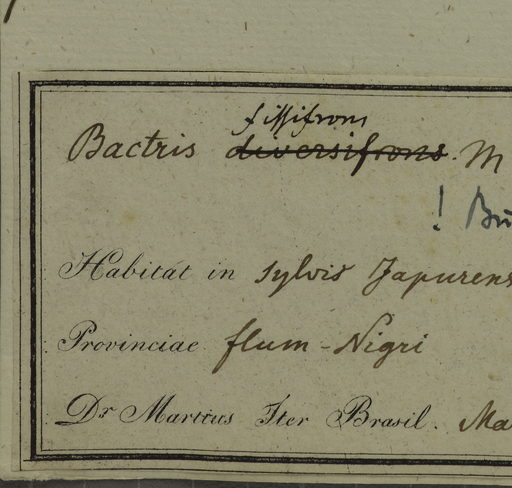 fissifrons
Bactris diversifrons. M
! Bu
Habitat in sylvis Japurens
Provinciae flum-Nigri
Dr Martius Iter Brasil. Ma